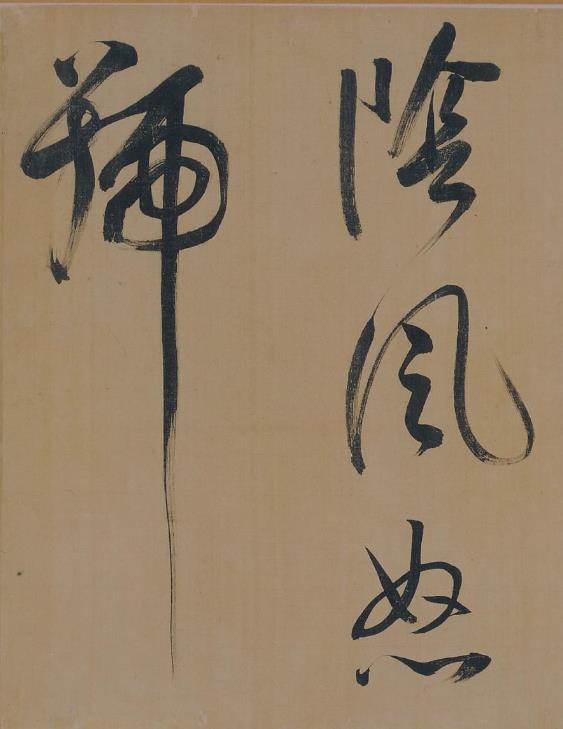 陰風怒
號